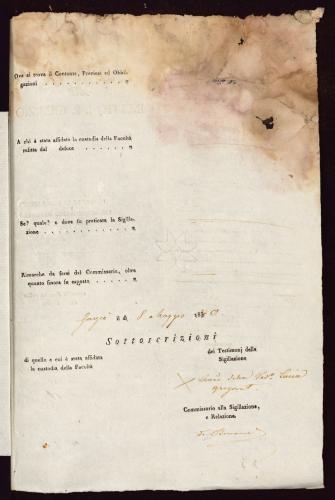 Ove si trova il Contante, Preziosi ed Obbli-
gazioni . . . . . . . . . . . . "
A chi è stata affidata la custodia della Facoltà
relitta dal defunto . . . . . . . . "
Se? quale? e dove fu praticata la Sigilla-
zione . . . . . . . . . . . . "
Rimarche da farsi dal Commissario, oltre
quanto finora fu esposto . . . . . . "
li 8 Maggio 18
Sottoscrizioni
di quello a cui è stata affidata
la custodia della Facoltà
dei Testimonj della
Sigillazione
Commissario alla Sigillazione,
e Relazione.